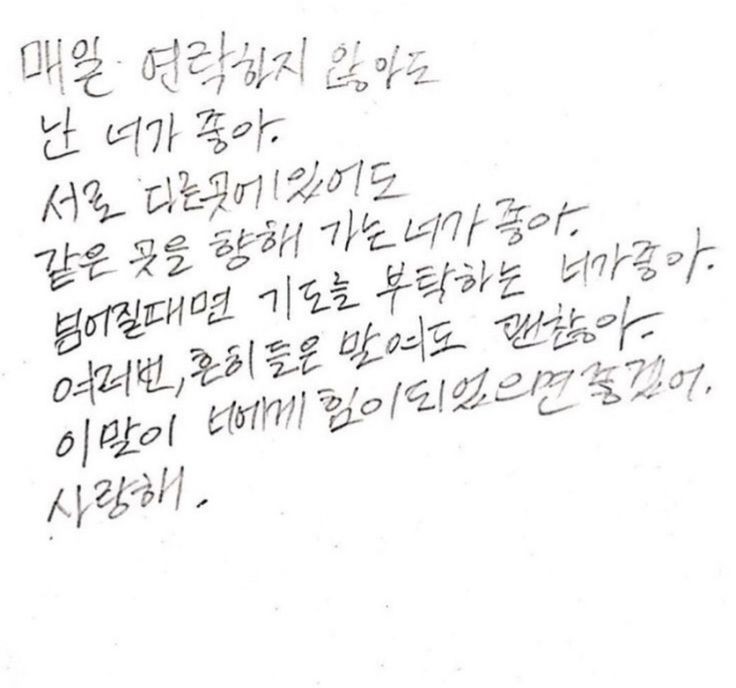 매일 연락하지 않아도
난 너가 좋아.
서로 다른곳에있어도
같은 곳을 향해 가는너가좋아.
넘어질때면 기도를 부탁하는 너가좋아.
여러번,흔히들은 말여도 괜찮아.
이말이 너에게힘이되었으면좋겠어.
사랑해.